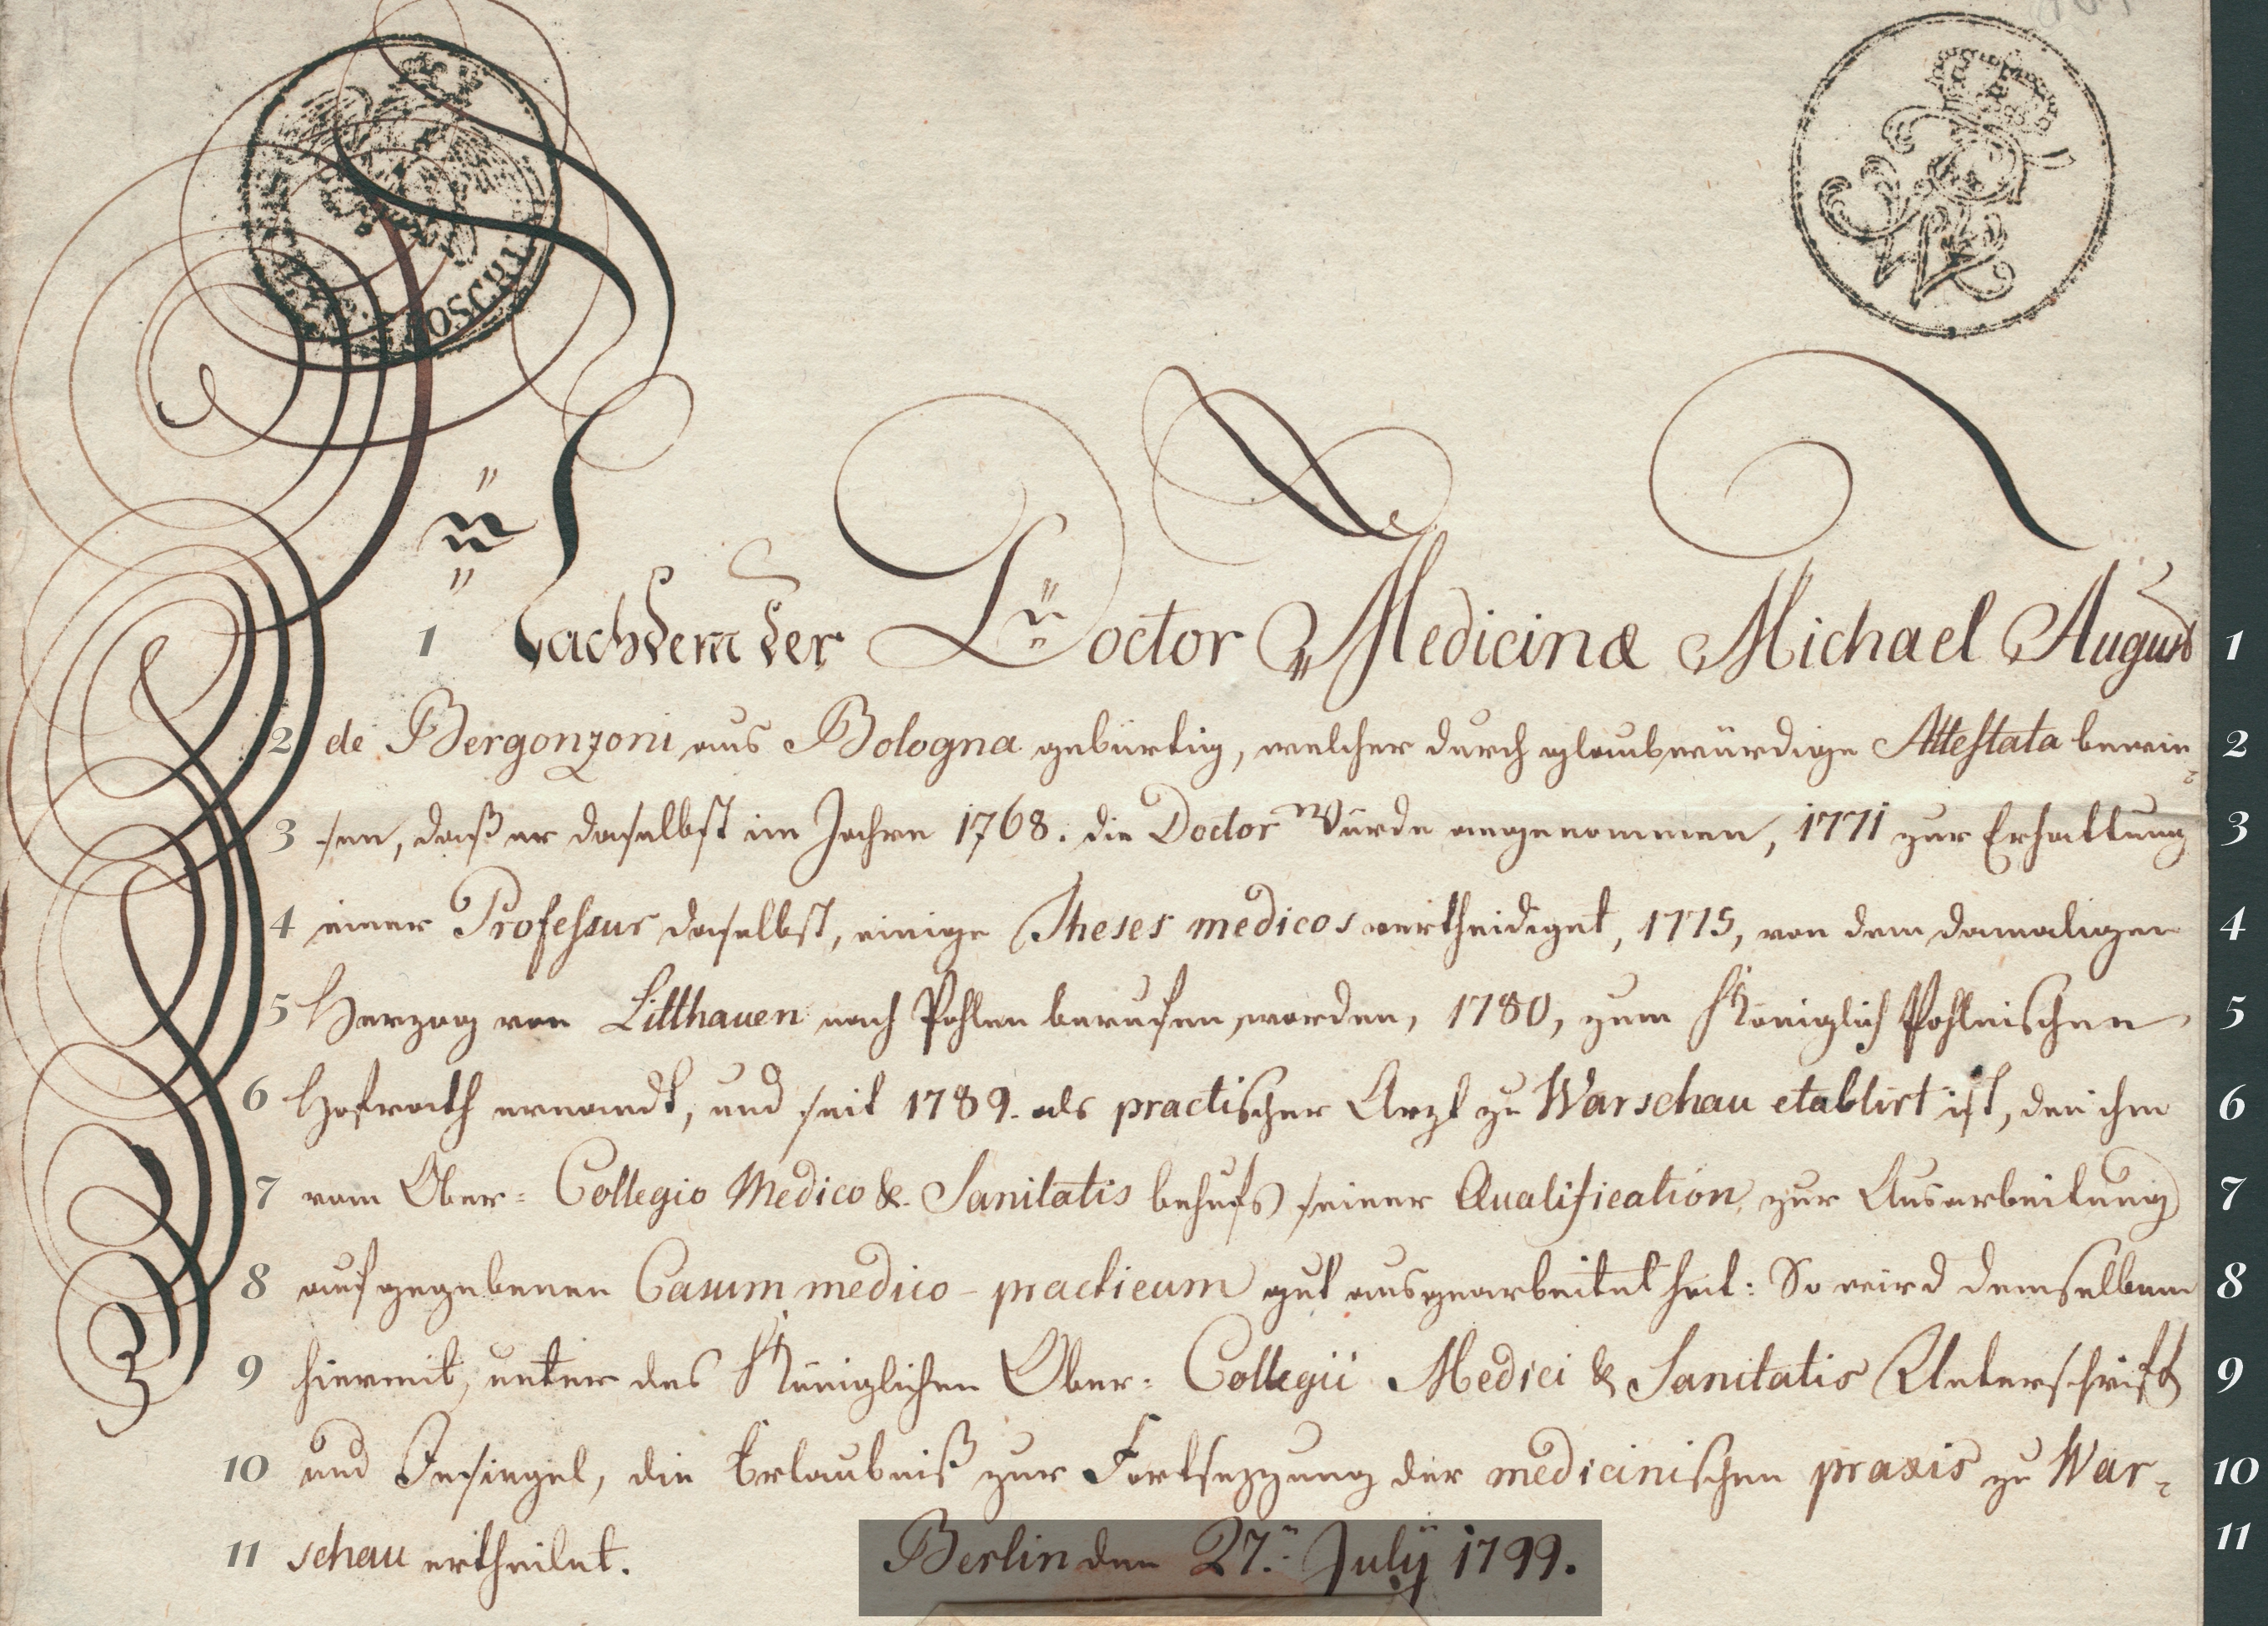 OSCH
1 Nachdem der Doctor Medicinæ Michael August 1
2 de Bergonzoni aus Bologna gebürtig, welcher durch glaubwürdige Attestata bewie- 2
3 sen, daß er daselbst im Jahre 1768. die Doctor Würde angenommen, 1771 zur Erhaltung 3
4 einer Professur daselbst, einige Theses medicos vertheidiget, 1775, von dem damaligen 4
5 Herzog von Litthauen nach Pohlen berufen worden, 1780, zum Königlich Pohlnischen 5
6 Hofrath ernandt, und seit 1789. als practischer Arzt zu Warschau etablirt ist, den ihm 6
7 vom Ober- Collegio Medico &. Sanitatis behufs seiner Qualification, zur Ausarbeitung 7
8 aufgegebenen Casum medico-practicum gut ausgearbeitet hat: So wird demselben 8
9 hiermit, unter des Königlichen Ober- Collegii Medici & Sanitatis Unterschrift 9
10 und Insiegel, die Erlaubniß zur Fortsezzung der medicinischen praxis zu War- 10
11 schau ertheilet. Berlin den 27.n July 1799. 11